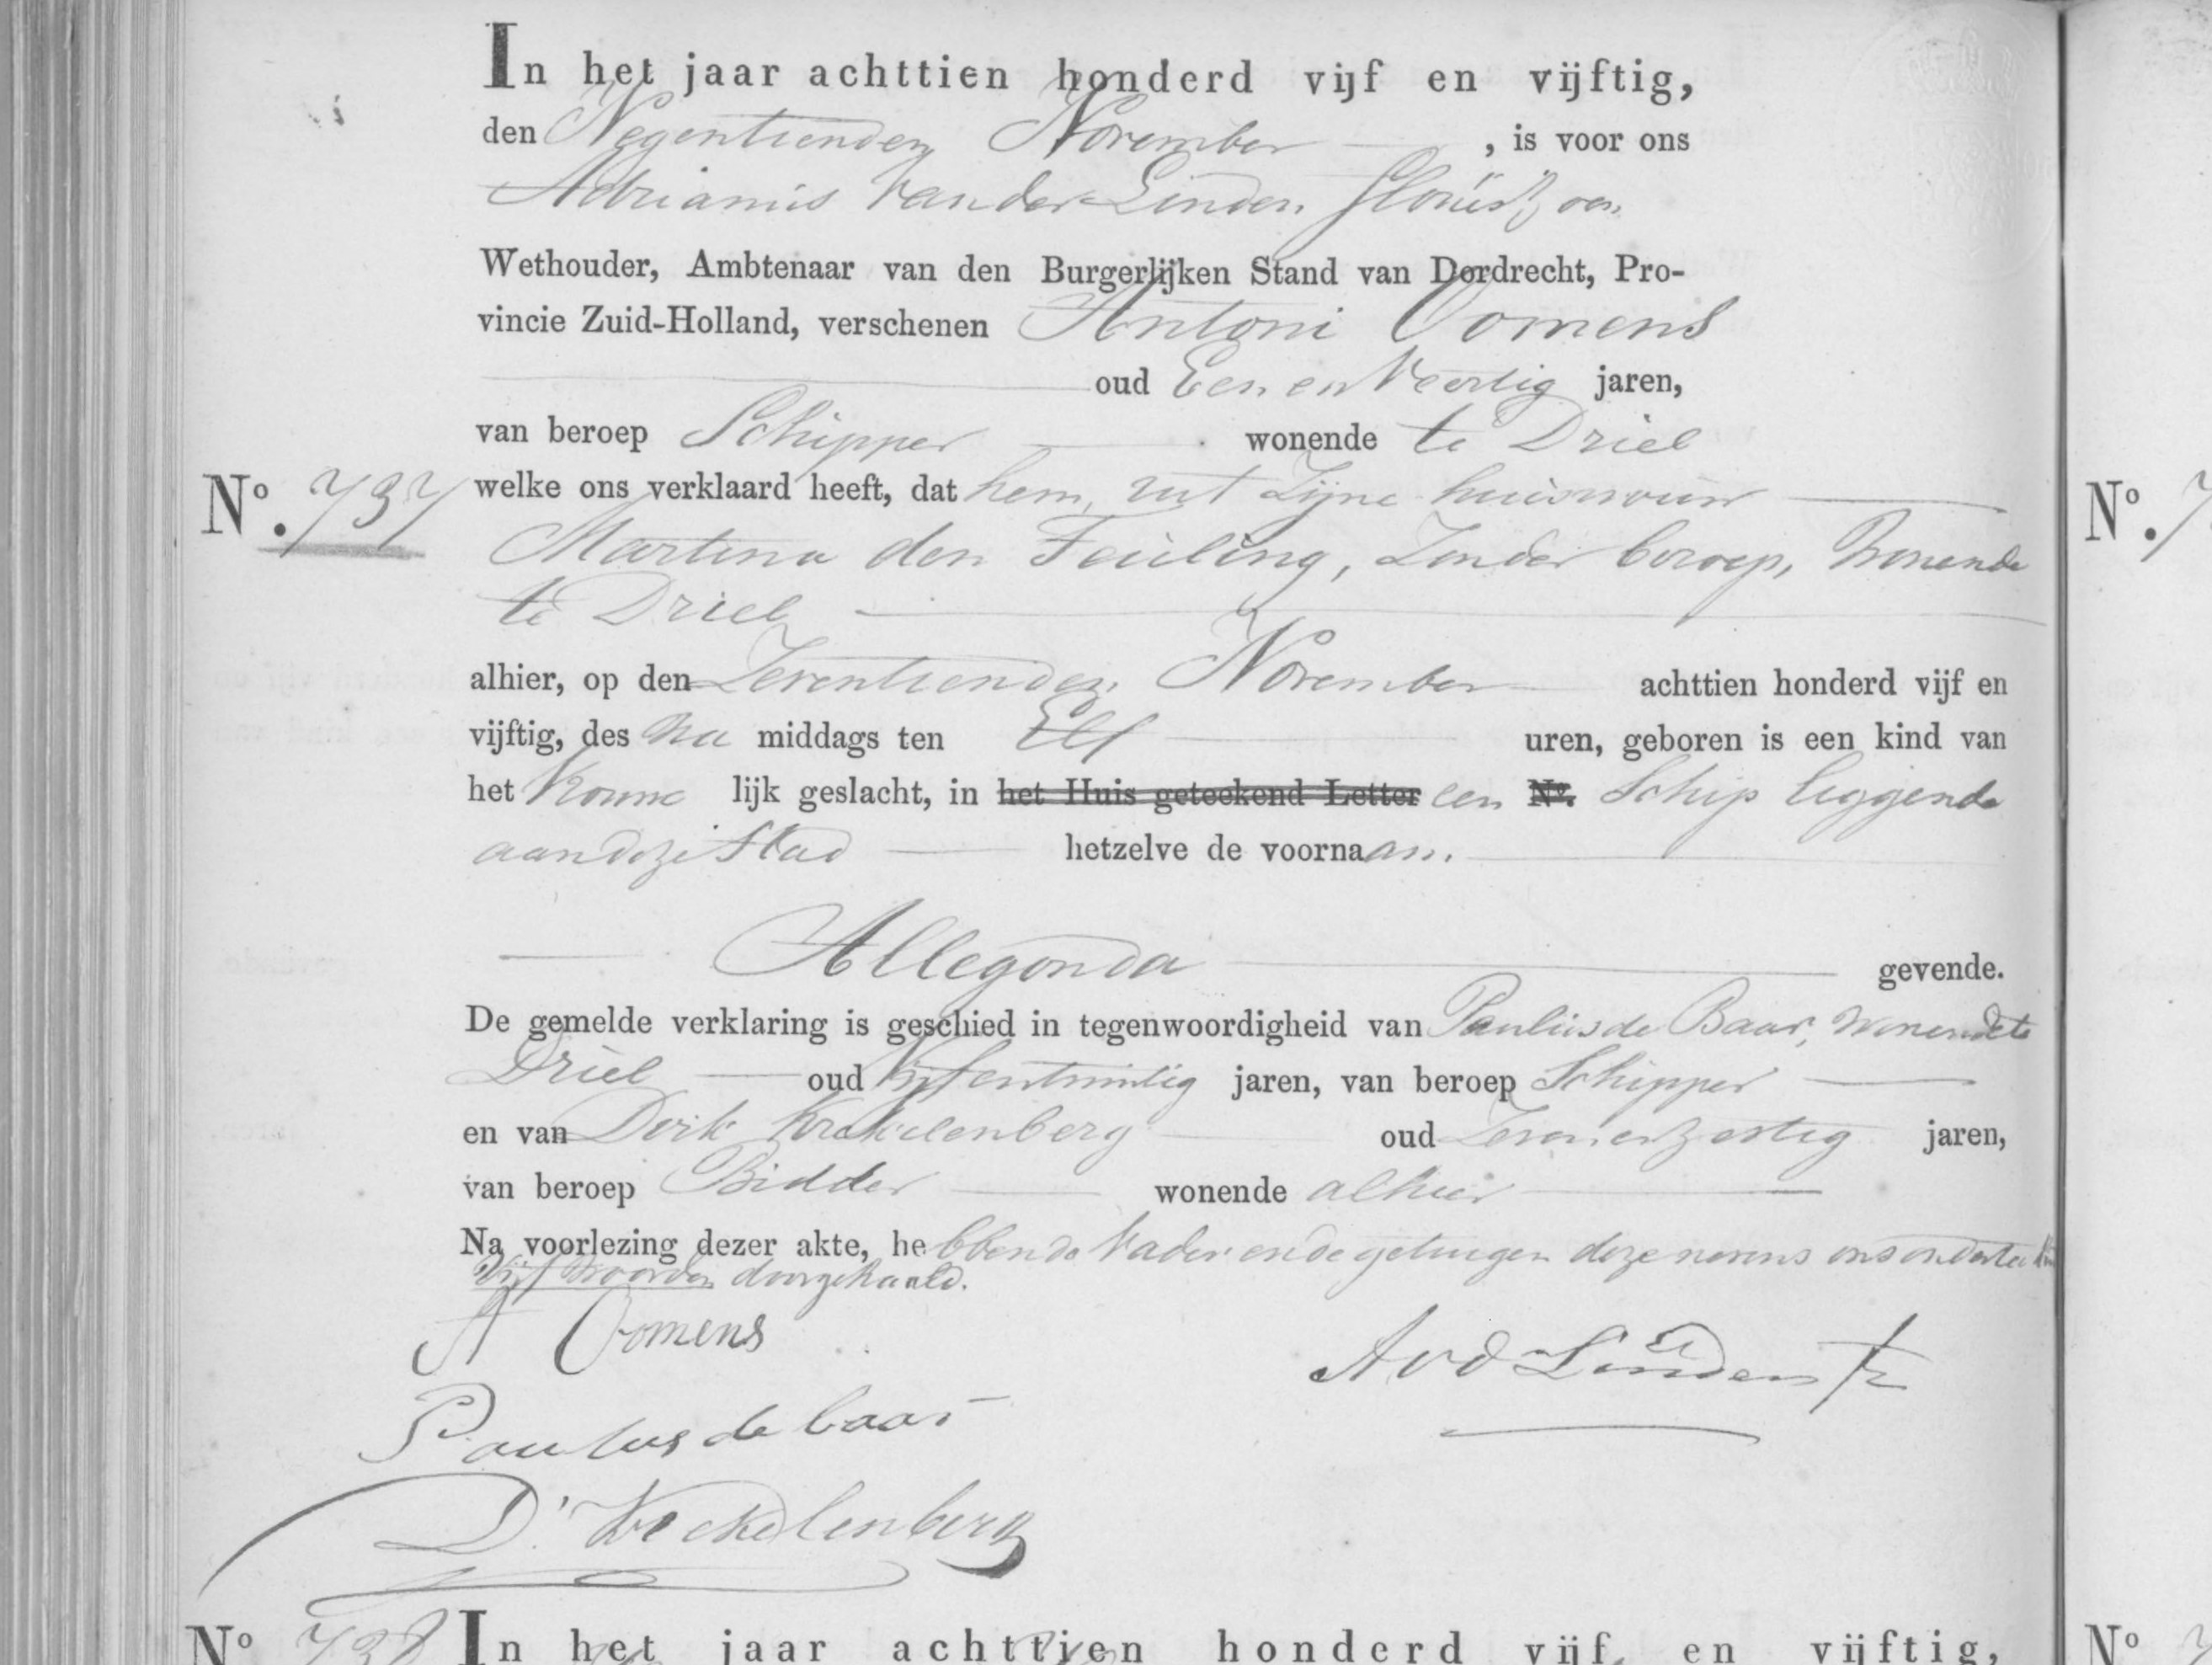 In het jaar achttien honderd vijf en vijftig,
den Negentienden November, is voor ons
Adrianus van der Linden Floriszoon
Wethouder, Ambtenaar van den Burgerlijken Stand van Dordrecht, Pro-
vincie Zuid-Holland, verschenen Antoni Oomens
oud Een en Veertig jaren,
van beroep Schipper wonende te Driel
No. 737 welke ons verklaard heeft, dat hem, uit Zijne huisvrouw
Martina den Teuling, Zonder beroep, Wonende
te Driel
alhier, op den Zeventienden November achttien honderd vijf en
vijftig, des Na middags ten Elf uren, geboren is een kind van
het Vrouwe lijk geslacht, in het Huis geteekend Letter een No. Schip liggende
aan deze Stad hetzelve de voornaam
Allegonda gevende.
De gemelde verklaring is geschied in tegenwoordigheid van Paulus de Baar, Wonende te
Driel oud Vijfentwintig jaren, van beroep Schipper
en van Dirk Krekelenberg oud Zevenenzestig jaren,
van beroep Bidder wonende alhier
Na voorlezing dezer akte, hebben de Vader en de getuigen deze nevens ons onderteekend
Vijf Woorden doorgehaald.
A Oomens
AvdLinden Fz
Paulus de baar
D. Krekelenberg
No. 738 In het jaar achttien honderd vijf en vijftig,
No. 7
No